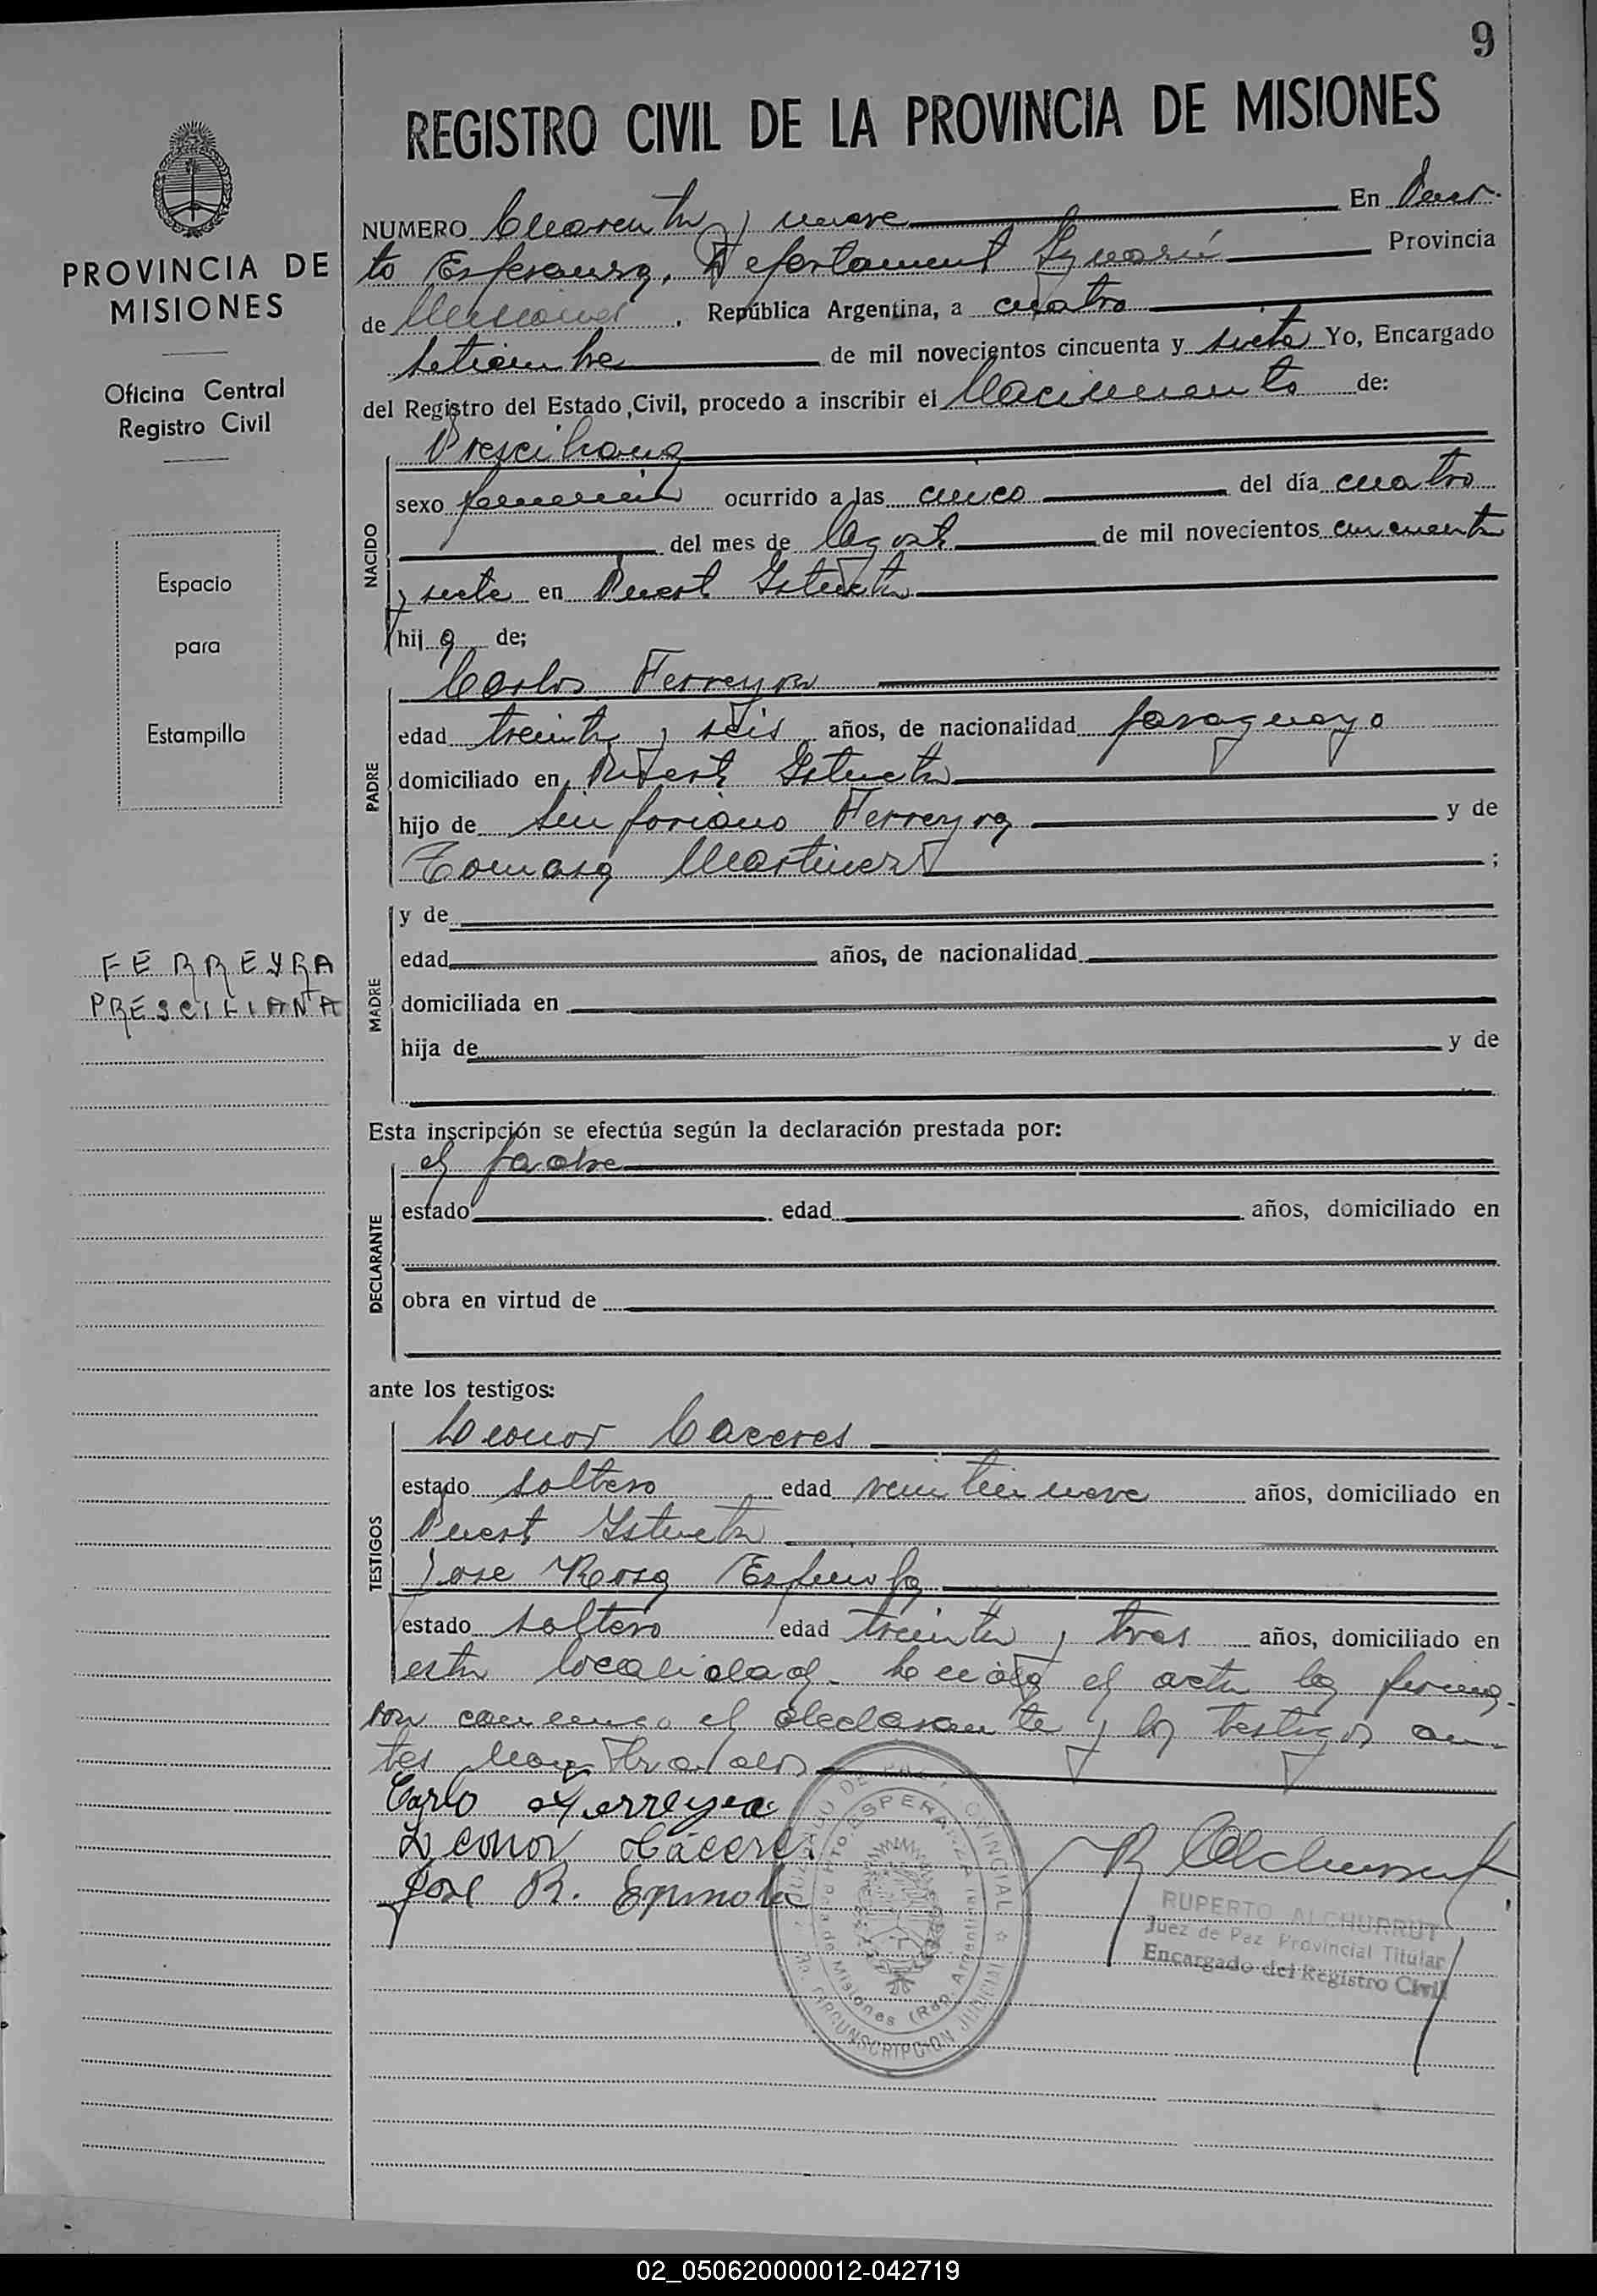 9
REGISTRO CIVIL DE LA PROVINCIA DE MISIONES
PROVINCIA DE
MISIONES
Oficina Central
Registro Civil
Espacio
para
Estampilla
FERREYRA
PRESCILIANA
NUMERO Cuarenta y nueve En Puer-
to Esperanza, Departament Iguazú Provincia
de Misiones, República Argentina, a cuatro
setiembre de mil novecientos cincuenta y siete Yo, Encargado
del Registro del Estado Civil, procedo a inscribir el Nacimiento de:
NACIDO
Presciliana
sexo femenin ocurrido a las cinco del día cuatro
del mes de Agost de mil novecientos cincuenta
y siete en Puert Istueta
hij a de;
PADRE
Carlos Ferreyra
edad treinta y seis años, de nacionalidad paraguayo
domiciliado en Puert Istueta
hijo de Sinforiano Ferreyra y de
Tomasa Martinez ;
MADRE
y de
edad años, de nacionalidad
domiciliada en
hija de y de
Esta inscripción se efectúa según la declaración prestada por:
DECLARANTE
el padre
estado edad años, domiciliado en
obra en virtud de
ante los testigos:
TESTIGOS
Leonor Caceres
estado soltero edad veintinueve años, domiciliado en
Puert Istueta
Jose Rosa Espinola
estado soltero edad treinta y tres años, domiciliado en
esta localidad. Leida el acta la firma-
ron conmigo el declarante y los testigos an-
tes nombrados
Carlo Ferreyra
Leonor Cácere
José R. Epinola
R Alchurrut
RUPERTO ALCHURRUT
Juez de Paz Provincial Titular
Encargado del Registro Civil
JUZGADO DE PAZ PROVINCIAL
PTO. ESPERANZA
Pcia de Misiones (Rep. Argentina)
CIRCUNSCRIPCION JUDICIAL
02_050620000012-042719